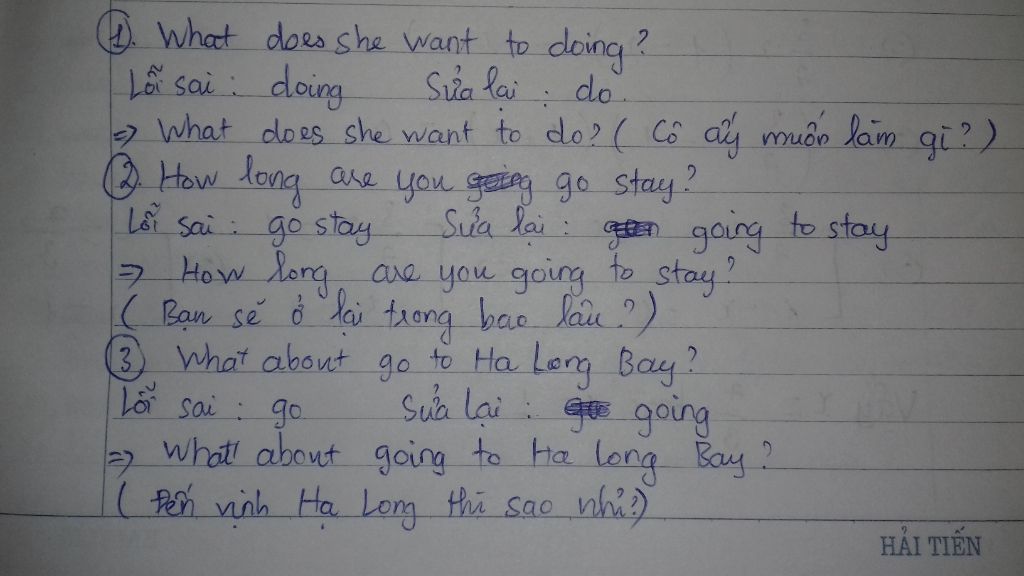 1. What does she want to doing?
Lỗi sai : doing Sửa lại : do.
=> What does she want to do? ( Cô ấy muốn làm gì? )
2. How long are you go stay?
Lỗi sai : go stay Sửa lại : going to stay
=> How long are you going to stay?
( Bạn sẽ ở lại trong bao lâu? )
3 What about go to Ha Long Bay?
Lỗi sai : go Sửa lại : going
=> What about going to Ha Long Bay?
( Đến vịnh Hạ Long thì sao nhỉ? )
HẢI TIẾN